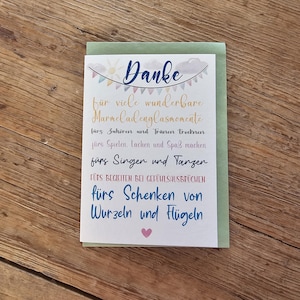 Danke
für viele wunderbare
Marmeladenglasmomente
fürs Zuhören und Tränen trocknen
fürs Spielen, Lachen und Spaß machen
fürs Singen und Tanzen
FÜRS BEGLEITEN BEI GEFÜHLSAUSBRÜCHEN
fürs Schenken von
Wurzeln und Flügeln